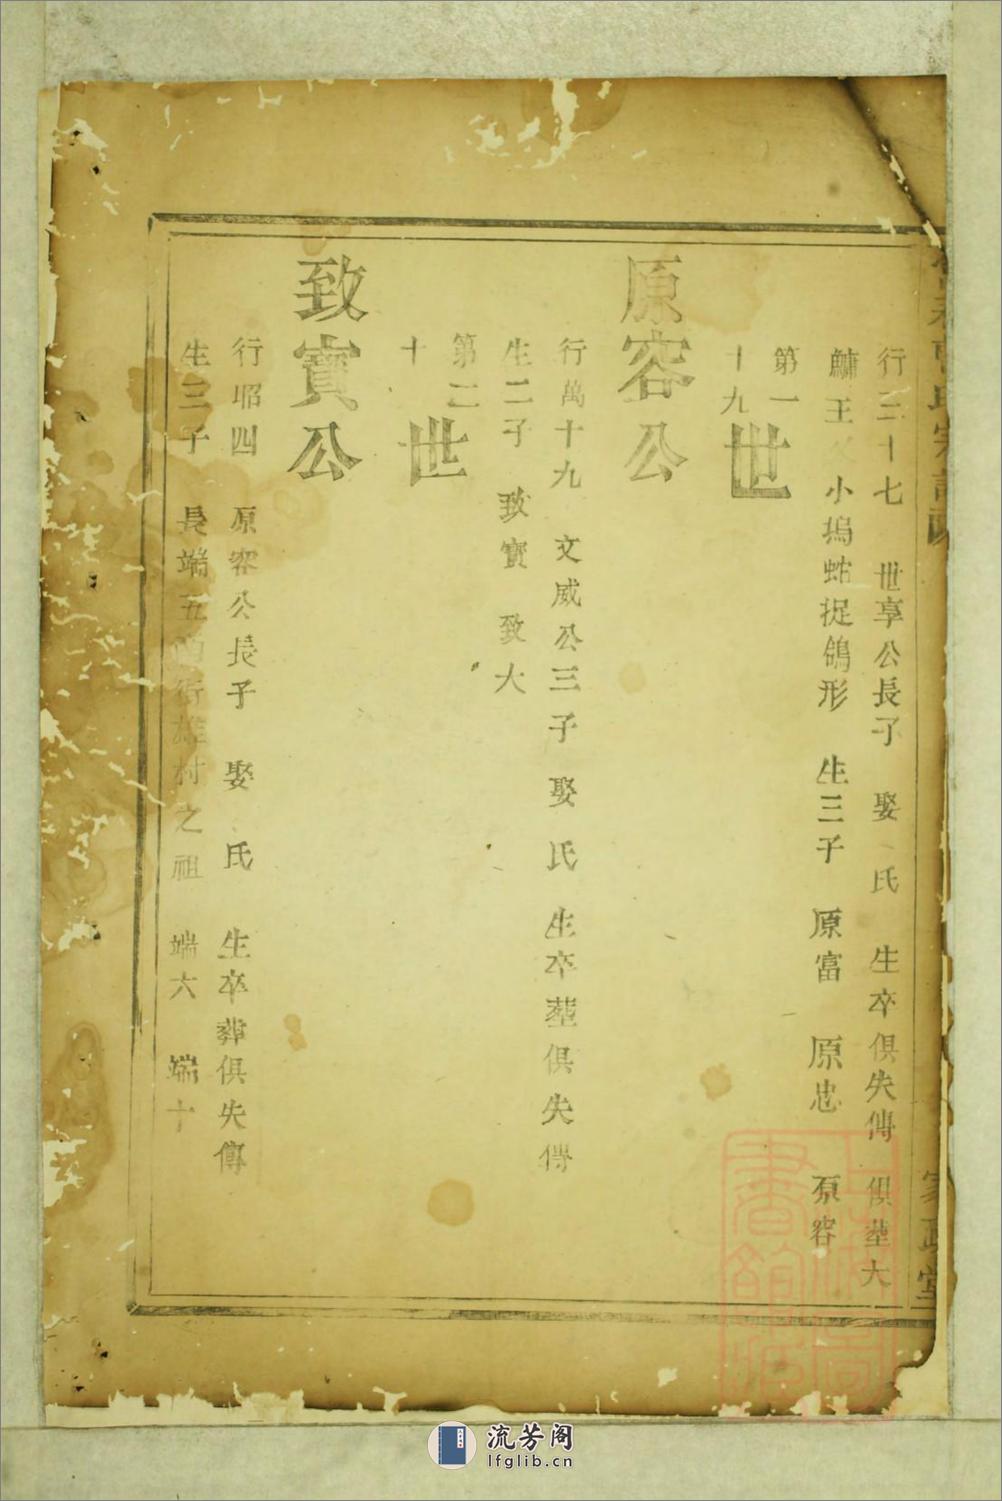 行三十七 世享公長子 娶 氏 生卒俱失傳 俱塟大
鱅王 小塢蛇捉鴿形 生三子 原富 原忠 原容
第一
十九世
原容公
行萬十九 文威公三子娶 氏 生卒塟俱失傳
生二子 致寶 致大
第二
十 世
致寶公
行昭四 原容公長子 娶 氏 生卒葬俱失傳
生三子 長端五 街雄村之祖 端六 端十
家政堂
流芳阁
lfglib.cn